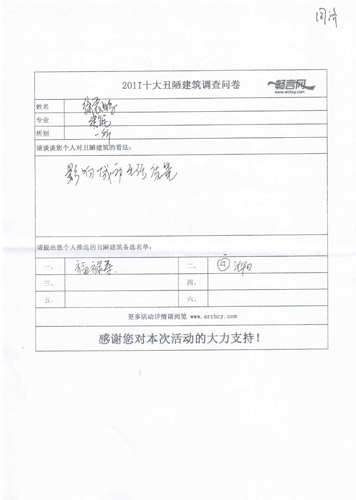 同济
2011十大丑陋建筑调查问卷
畅言网
www.archcy.com
姓名
专业 建筑
所别 一所
请谈谈您个人对丑陋建筑的看法:
影响城市
请提出您个人推选的丑陋建筑备选名单:
一、 福禄寿 二、 沈阳
三、 四、
五、 六、
更多活动详情请浏览 www.archcy.com
感谢您对本次活动的大力支持!